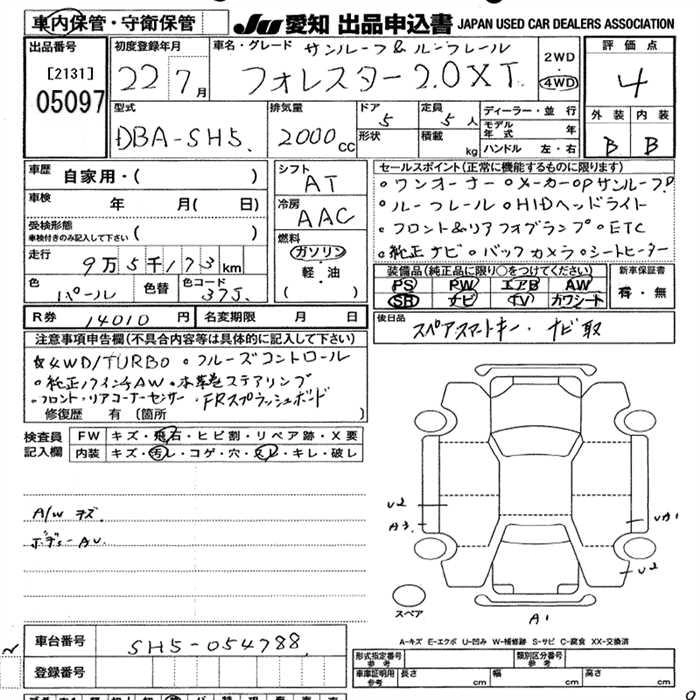 車内保管・守衛保管
JU 愛知 出品申込書 JAPAN USED CAR DEALERS ASSOCIATION
出品番号
[2131]
05097
初度登録年月
22年7月
車名・グレード サンルーフ&ルーフレール
フォレスター 2.0XT
2WD
4WD
評価点
4
外装 内装
B B
型式
DBA-SH5.
排気量
2000cc
ドア 5
形状
定員 5人
積載 kg
ディーラー・並行
モデル年式 年
ハンドル 左・右
車歴
自家用・( )
車検 年 月( 日)
受検形態
車検付きのみ記入して下さい ( )
走行 9万5千173km
色 パール
色替
色コード 37J.
シフト
AT
冷房
AAC
燃料
ガソリン
軽・油
( )
セールスポイント(正常に機能するものに限ります)
•ワンオーナー •メーカーOPサンルーフ
•ルーフレール •HIDヘッドライト
•フロント&リアフォグランプ •ETC
•純正ナビ •バックカメラ •シートヒーター
装備品(純正品に限り○をつけてください)
PS PW エアB AW
SR ナビ TV カワシート
新車保証書
有・無
R券 14010円
名変期限 月 日
後日品
スペアスマートキー・ナビ取
注意事項申告欄(不具合内容等は具体的に記入して下さい)
☆4WD/TURBO •クルーズコントロール
•純正17インチAW •本革巻ステアリング
•フロント・リアコーナーセンサー •FRスプラッシュボード
修復歴 有 〔箇所
検査員記入欄
FW キズ・飛石・ヒビ割・リペア跡・X要
内装 キズ・汚レ・コゲ・穴・スレ・キレ・破レ
A/W キズ
ボディーAU
U2
A3
UA1
U2
スペア
A1
A-キズ E-エクボ U-凹み W-補修跡 S-サビ C-腐食 XX-交換済
車台番号 SH5-054788
登録番号
形式指定番号 参考
類別区分番号 参考
車庫証明用 参考 長さ cm 幅 cm 高さ cm